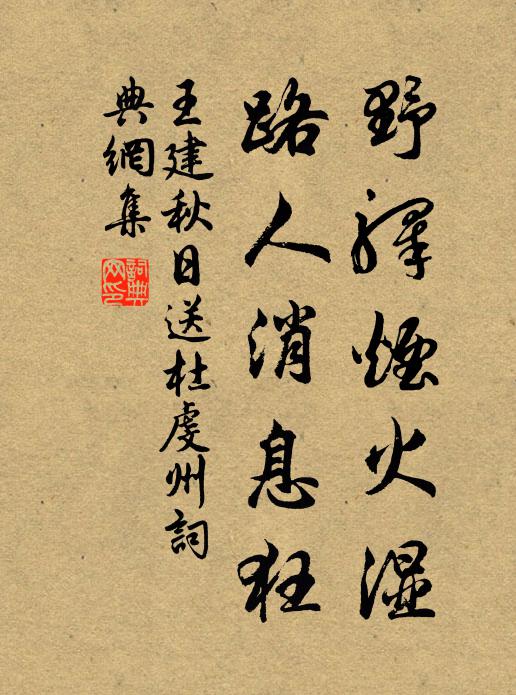 野驛煙火濕
路人消息狂
王建秋日送杜虔州詞
典網集
詞典網印